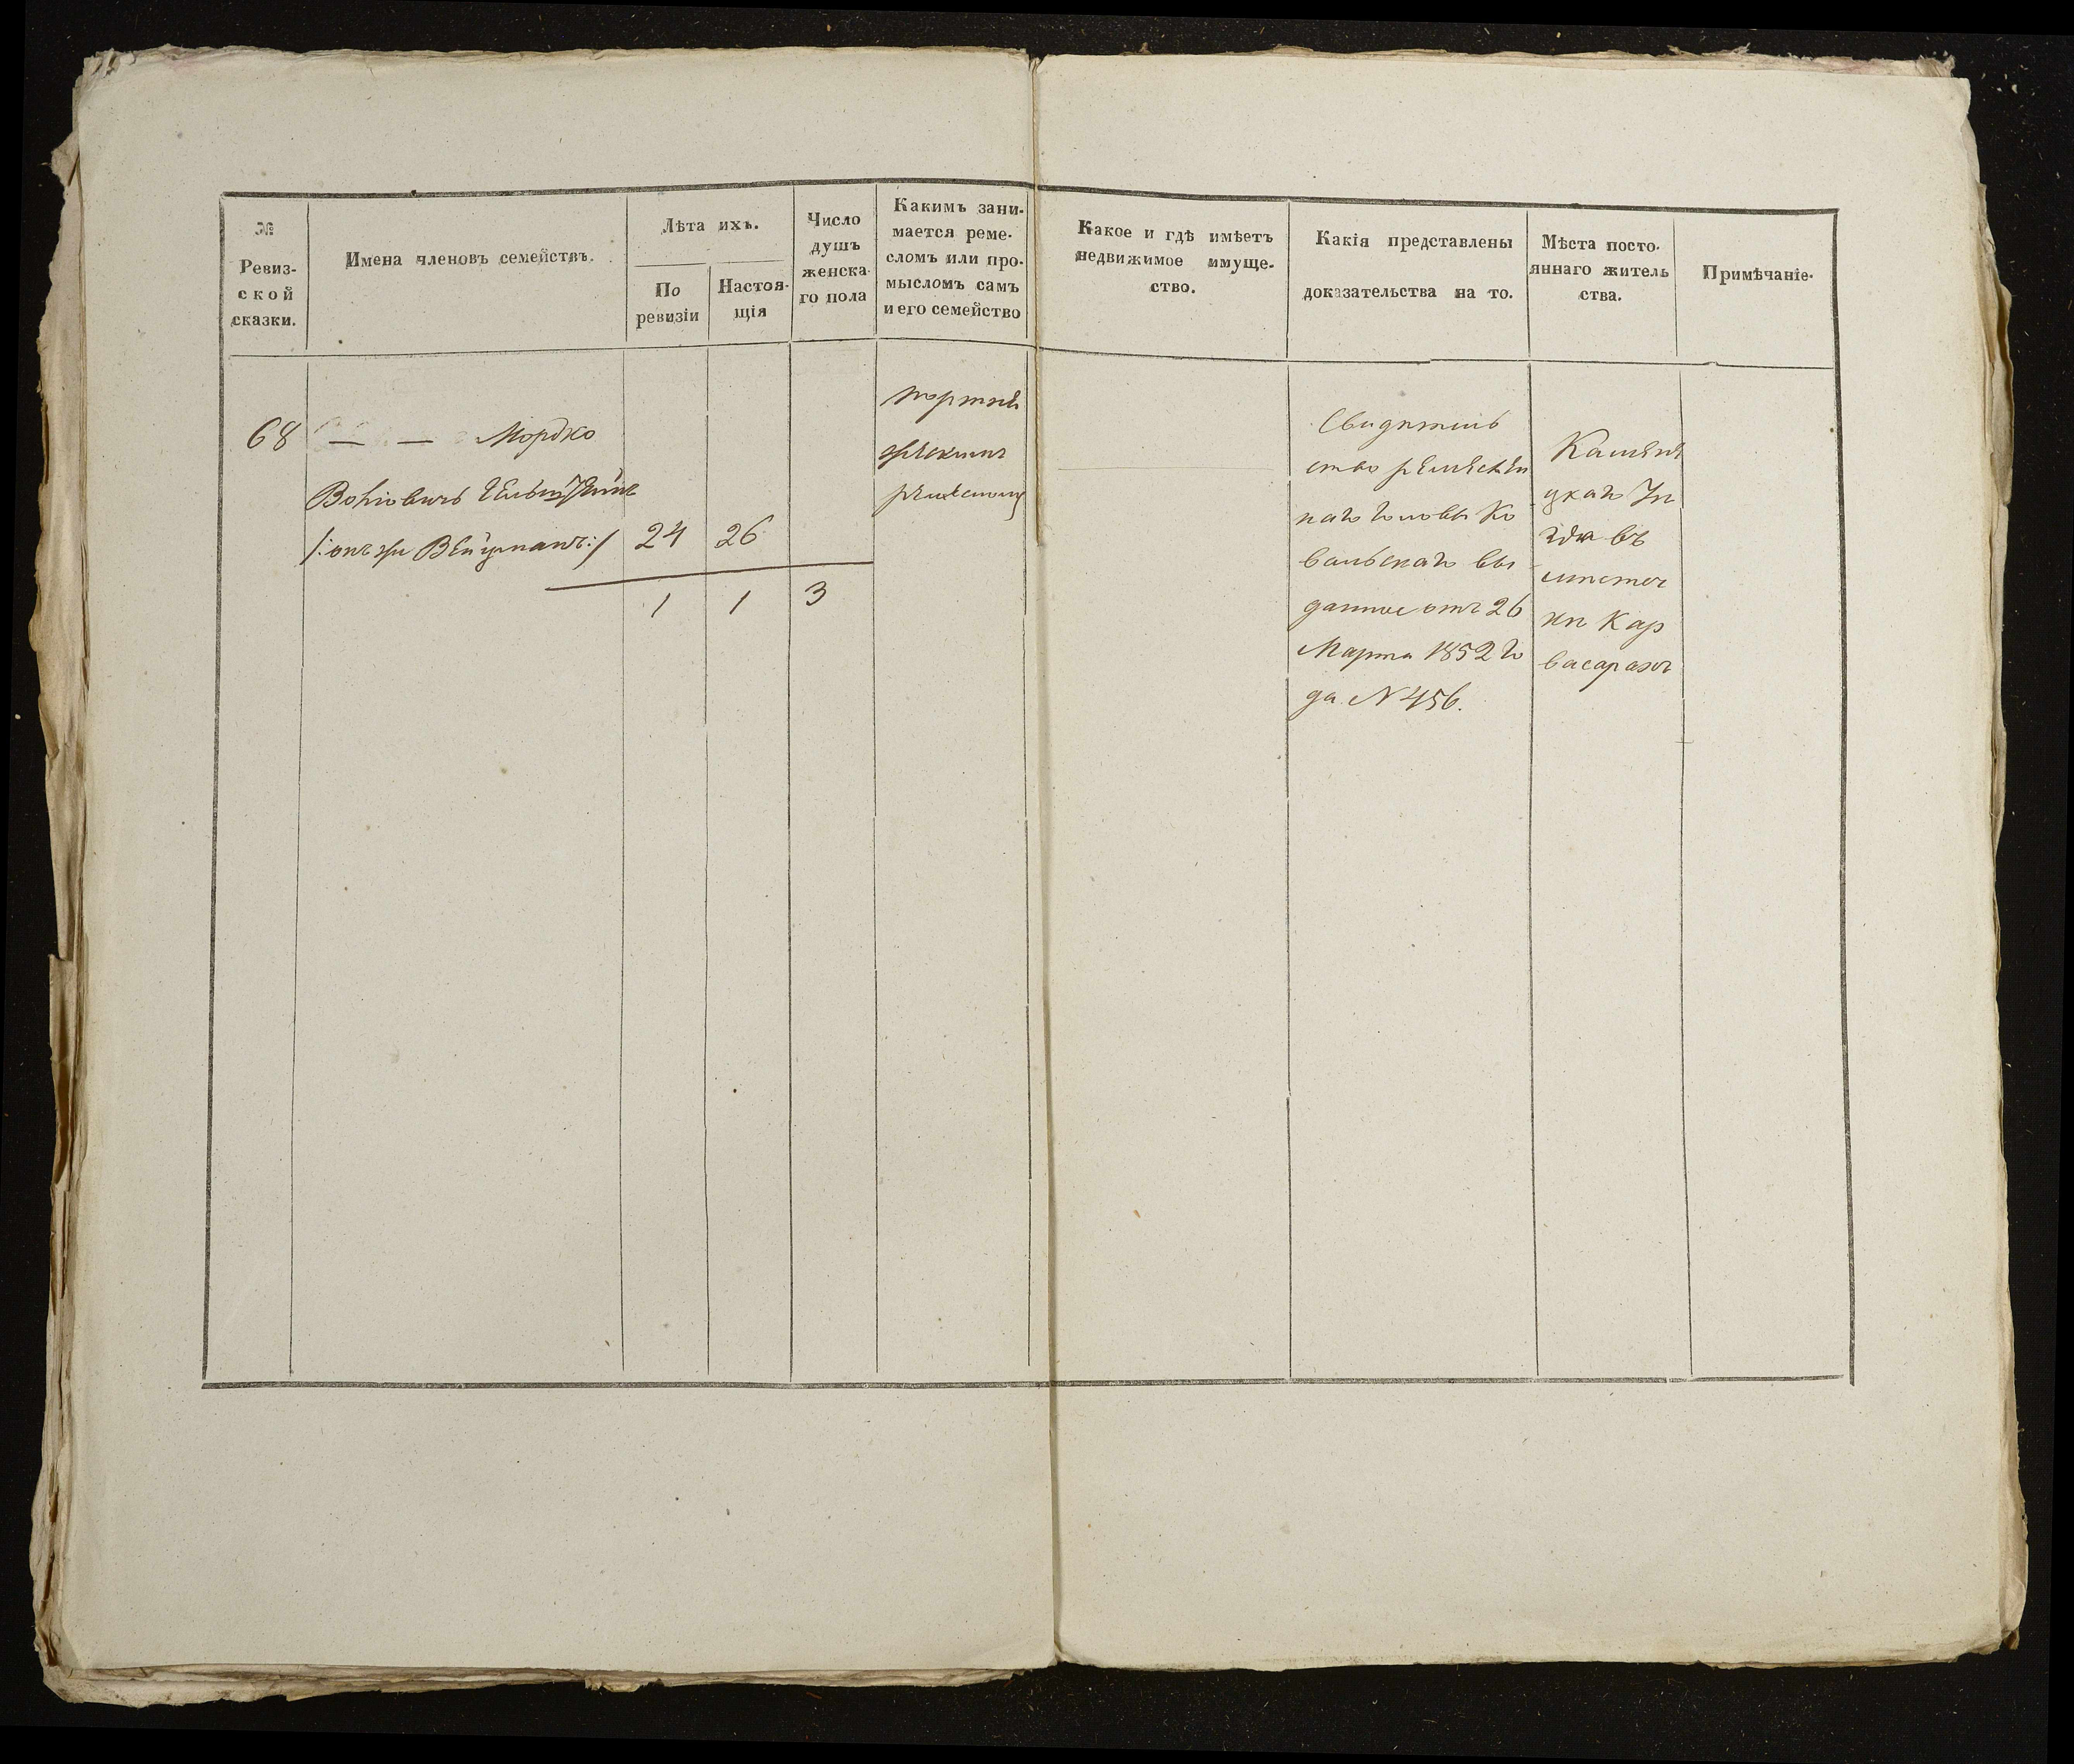 №
Ревиз-
ской
сказки.
Имена членовъ семействъ.
Лѣта ихъ.
По
ревизіи
Настоя-
щія
Число
душъ
женска-
го пола
Какимъ зани-
мается реме-
сломъ или про-
мысломъ самъ
и его семейство
Какое и гдѣ имѣетъ
недвижимое имуще-
ство.
Какія представлены
доказательства на то.
Мѣста посто-
яннаго житель
ства.
Примѣчаніе.
68 — — Мордко
Вольювичъ
/:онъ же Вейцманъ:/ 24 26
1 1 3
портня
жскимъ
ремесломъ
Свидѣтель
ство ремеслен
наго головы Ко
вальскаго вы
данное отъ 26
Марта 1852 го
да N 456.
Каменѣ
цкаго Уѣ
зда въ
мѣстеч
кѣ Кар
васарахъ